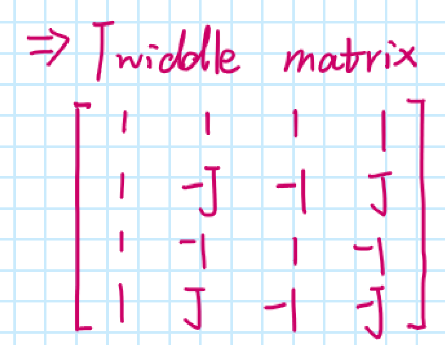 ⇒ Twiddle matrix
1 1 1 1
1 -J -1 J
1 -1 1 -1
1 J -1 -J